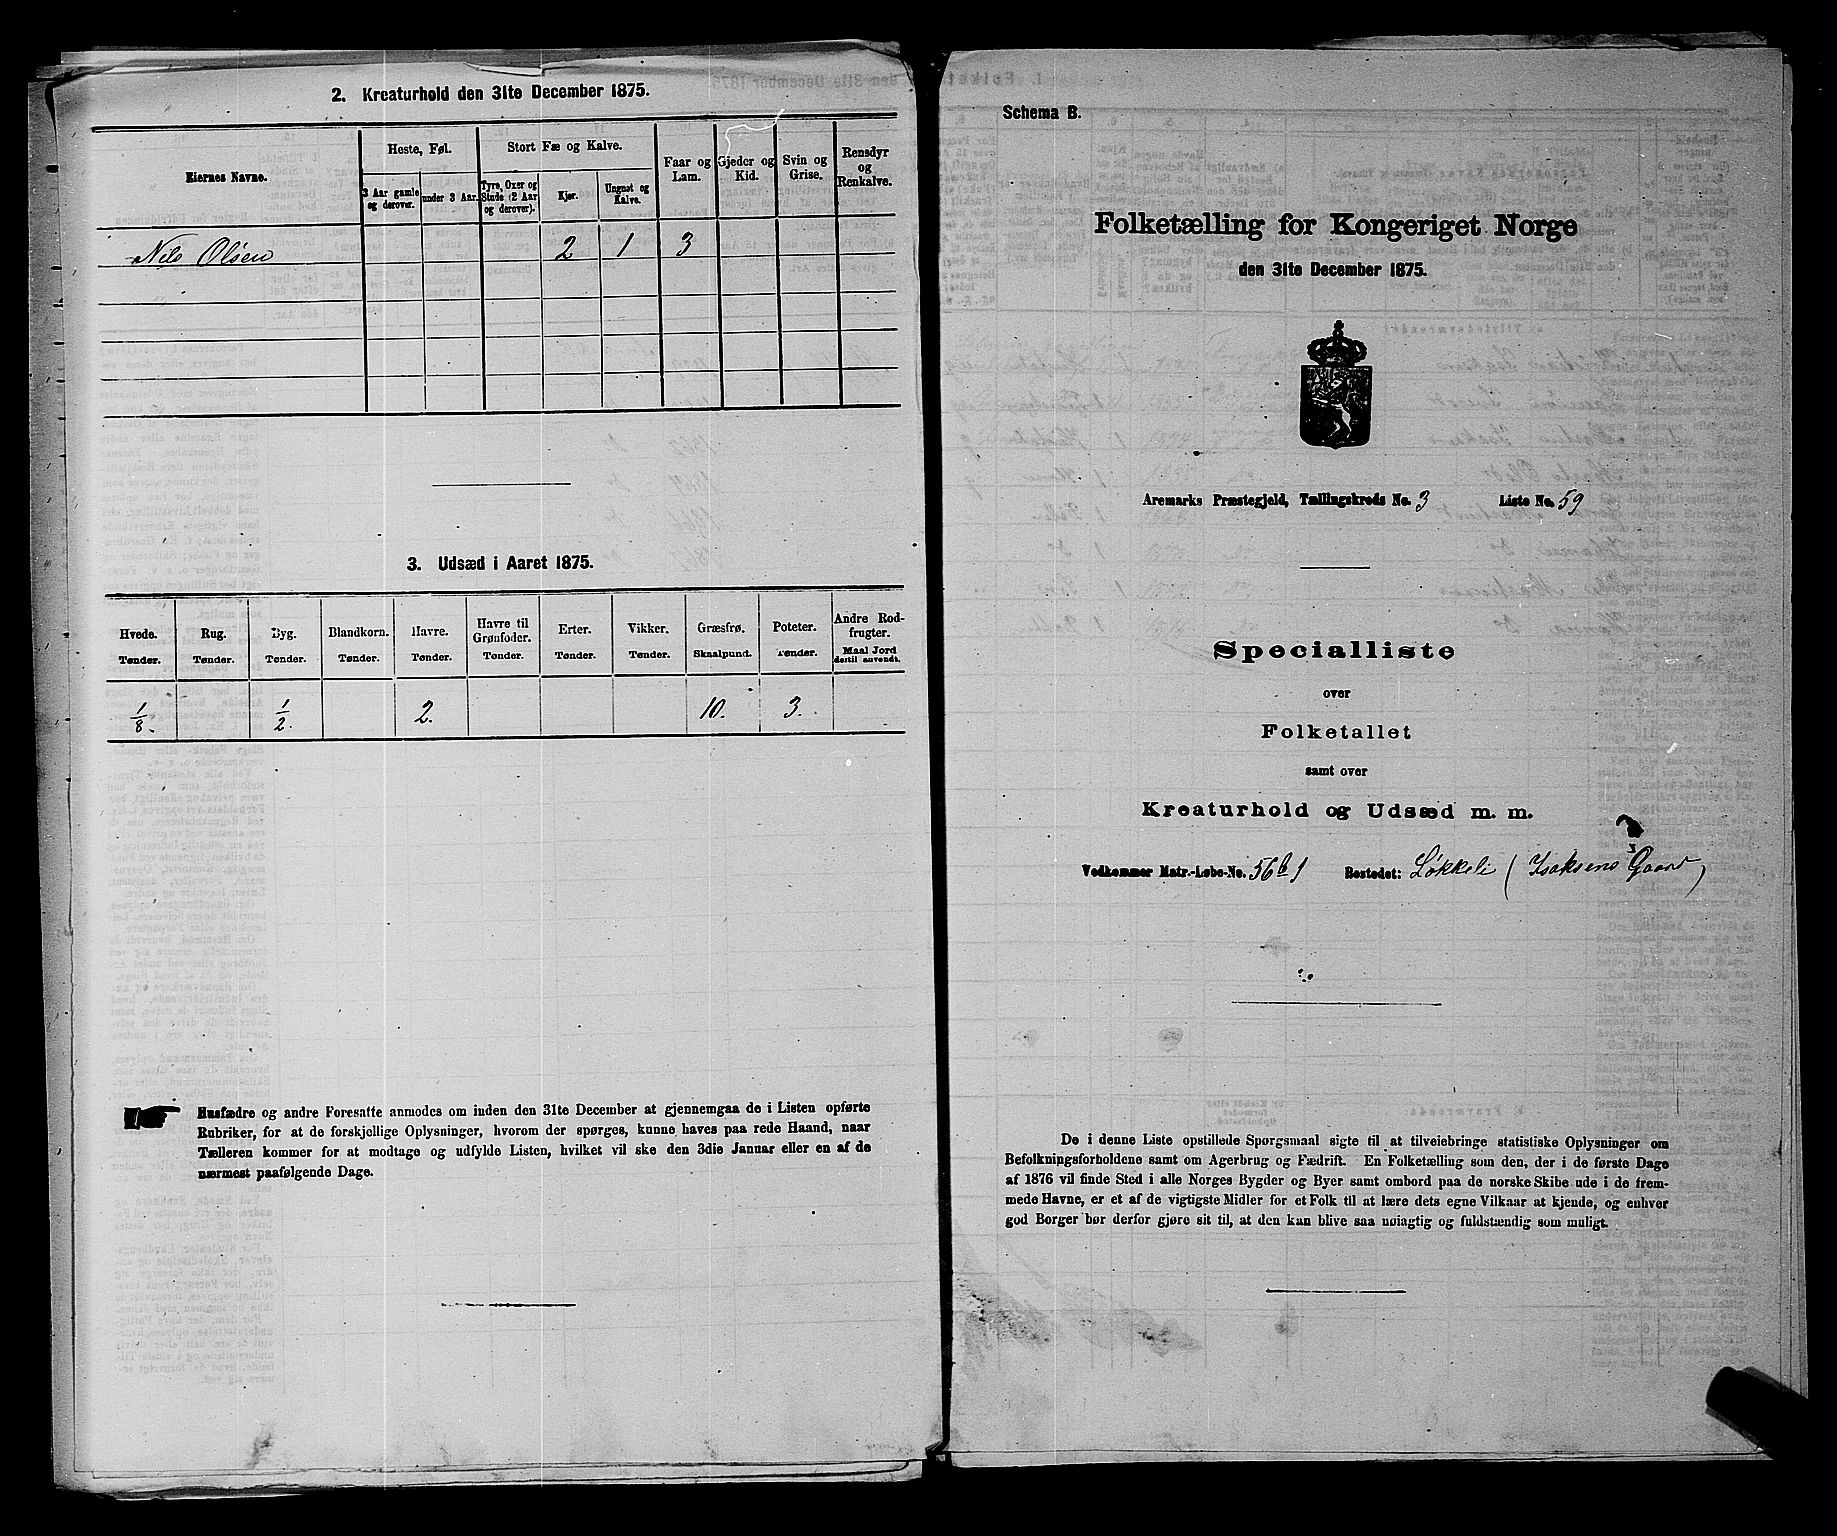 2. Kreaturhold den 31te December 1875.
Eiernes Navne.
Heste, Føl.
Stort Fæ og Kalve.
Faar og Lam.
Gjeder og Kid.
Svin og Grise.
Rensdyr og Renkalve.
3 Aar gamle og derover.
under 3 Aar.
Tyre, Oxer og Stude (2 Aar og derover).
Kjør.
Ungnøt og Kalve.
Nils Olsen 2 1 3
3. Udsæd i Aaret 1875.
Hvede. Rug. Byg. Blandkorn. Havre. Havre til Grønfoder. Erter. Vikker. Græsfrø. Poteter. Andre Rodfrugter.
Tønder. Tønder. Tønder. Tønder. Tønder. Tønder. Tønder. Tønder. Skaalpund. Tønder. Maal Jord dertil anvendt.
1/8. 1/2. 2. 10. 3.
Husfædre og andre Foresatte anmodes om inden den 31te December at gjennemgaa de i Listen opførte
Rubriker, for at de forskjellige Oplysninger, hvorom der spørges, kunne haves paa rede Haand, naar
Tælleren kommer for at modtage og udfylde Listen, hvilket vil ske den 3die Januar eller en af de
nærmest paafølgende Dage.
Schema B.
Folketælling for Kongeriget Norge
den 31te December 1875.
Aremarks Præstegjeld, Tællingskreds No. 3 Liste No. 59
Specialliste
over
Folketallet
samt over
Kreaturhold og Udsæd m. m.
Vedkommer Matr.-Løbe-No. 56b1 Bostedet: Løkkeli (Isaksens Gaard)
De i denne Liste opstillede Spørgsmaal sigte til at tilveiebringe statistiske Oplysninger om
Befolkningsforholdene samt om Agerbrug og Fædrift. En Folketælling som den, der i de første Dage
af 1876 vil finde Sted i alle Norges Bygder og Byer samt ombord paa de norske Skibe ude i de frem-
mede Havne, er et af de vigtigste Midler for et Folk til at lære dets egne Vilkaar at kjende, og enhver
god Borger bør derfor gjøre sit til, at den kan blive saa nøiagtig og fuldstændig som muligt.